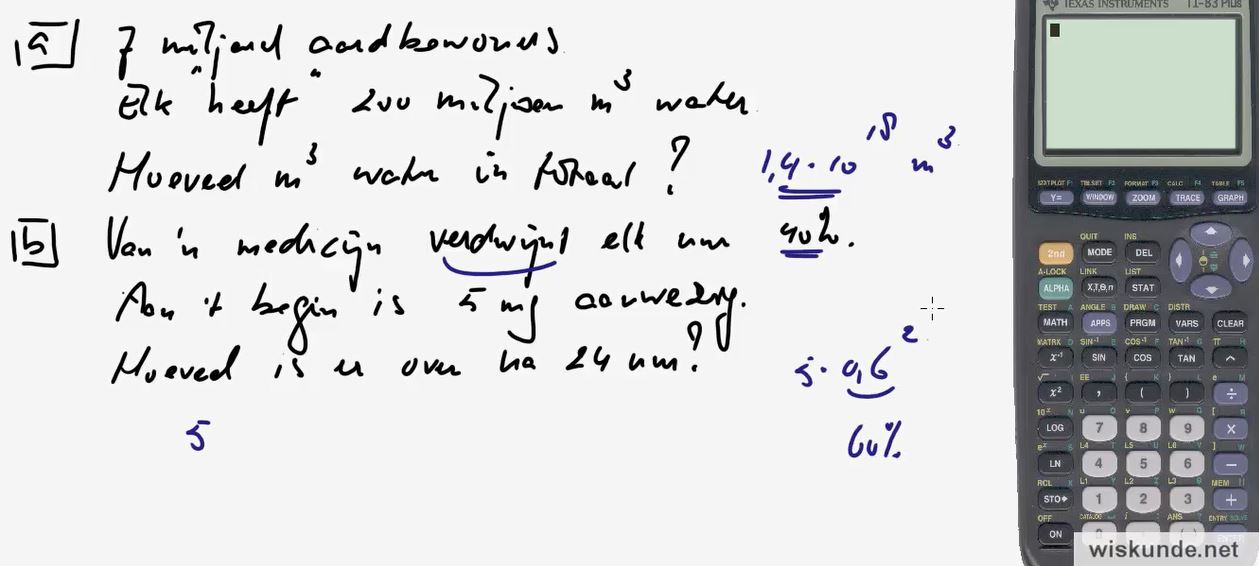 a 7 miljard aardbewoners
Elk "heeft" 200 miljoen m³ water
Hoeveel m³ water in totaal? 1,4 · 10¹⁸ m³
b Van 'n medicijn verdwijnt elk uur 40%.
Aan 't begin is 5 mg aanwezig.
Hoeveel is er over na 24 uur? 5 · 0,6²
5 60%
TEXAS INSTRUMENTS TI-83 Plus
STAT PLOT F1 TBLSET F2 FORMAT F3 CALC F4 TABLE F5
Y= WINDOW ZOOM TRACE GRAPH
QUIT INS
2nd MODE DEL
A-LOCK LINK LIST
ALPHA X,T,θ,n STAT
TEST A ANGLE B DRAW C DISTR
MATH APPS PRGM VARS CLEAR
MATRX D SIN⁻¹ E COS⁻¹ F TAN⁻¹ G π H
x⁻¹ SIN COS TAN ^
√ I EE J { K } L e M
x² , ( ) ÷
10ˣ N u O v P w Q [ R
LOG 7 8 9 ×
eˣ S L4 T L5 U L6 V ] W
LN 4 5 6 −
RCL X L1 Y L2 Z L3 θ MEM "
STO▸ 1 2 3 +
OFF CATALOG i : ANS ? ENTRY SOLVE
ON
wiskunde.net